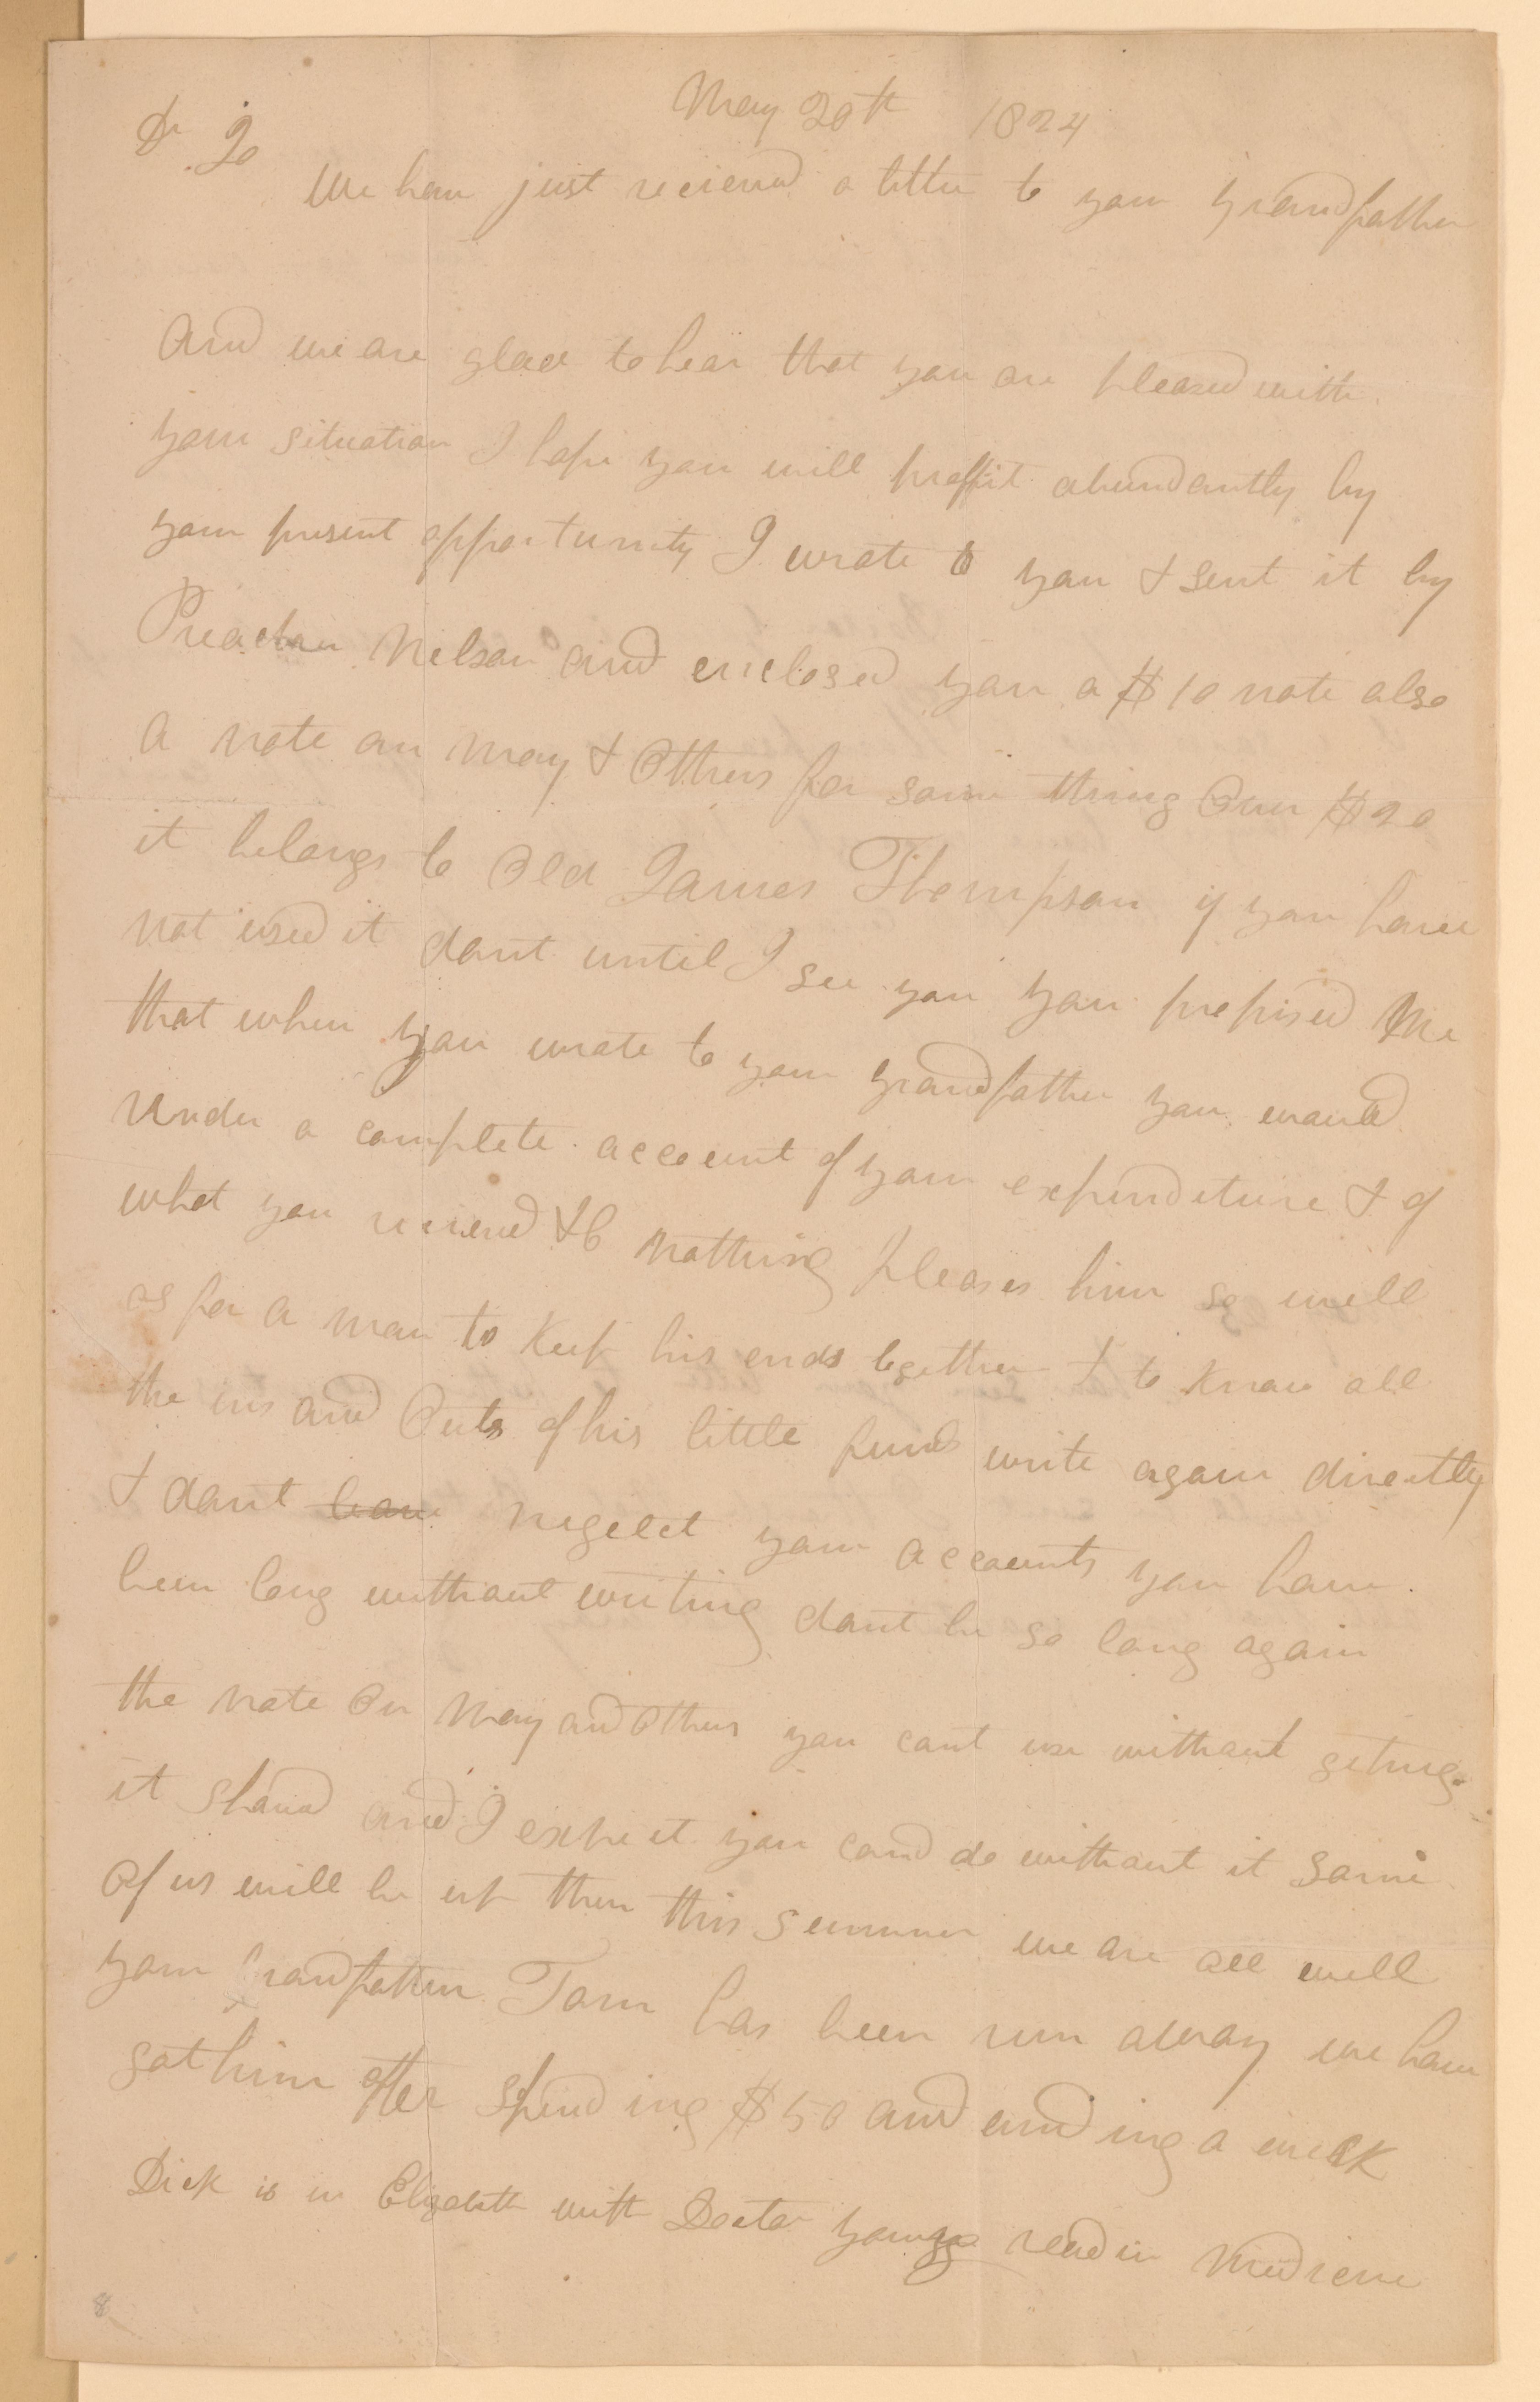 May 20th 1824
Dr Jo
We have just recieved a letter to your grandfather
And we are glad to hear that you are pleased with
your situation I hope you will proffit abundantly by
your present opportunity I wrote to you & sent it by
Preacher Nelson and enclosed you a $10 note also
a note on May & Others for some thing Over $20
it belongs to Old James Thompson if you have
not used it dont until I see you you promised Me
that when you wrote to your grandfather you would
render a complete account of your expenditure & of
what you recieved &C nothing pleases him so well
as for a man to keep his ends together & to know all
the ins and Outs of his little fund write again directly
& dont have negelct your accounts you have
been long without writing dont be so long again
the note On May and Others you cant use without geting
it shavd and I expect you can do without it some
Of us will be up there this summer we are all well
your Grandfathers Tom has been run away we have
got him after spending $50 and ending a week
Dick is in Elizabeth with Doctor young readin Medicine
8